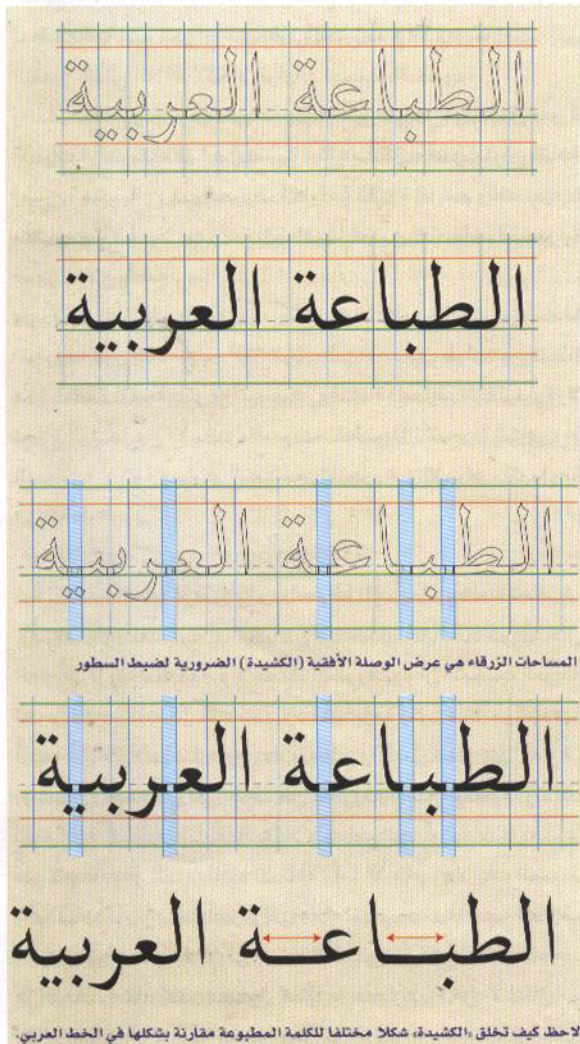 الطباعة العربية
الطباعة العربية
الطباعة العربية
المساحات الزرقاء هي عرض الوصلة الأفقية (الكشيدة) الضرورية لضبط السطور
الطباعة العربية
الطبـاعـة العربية
لاحظ كيف تخلق «الكشيدة» شكلا مختلفا للكلمة المطبوعة مقارنة بشكلها في الخط العربي